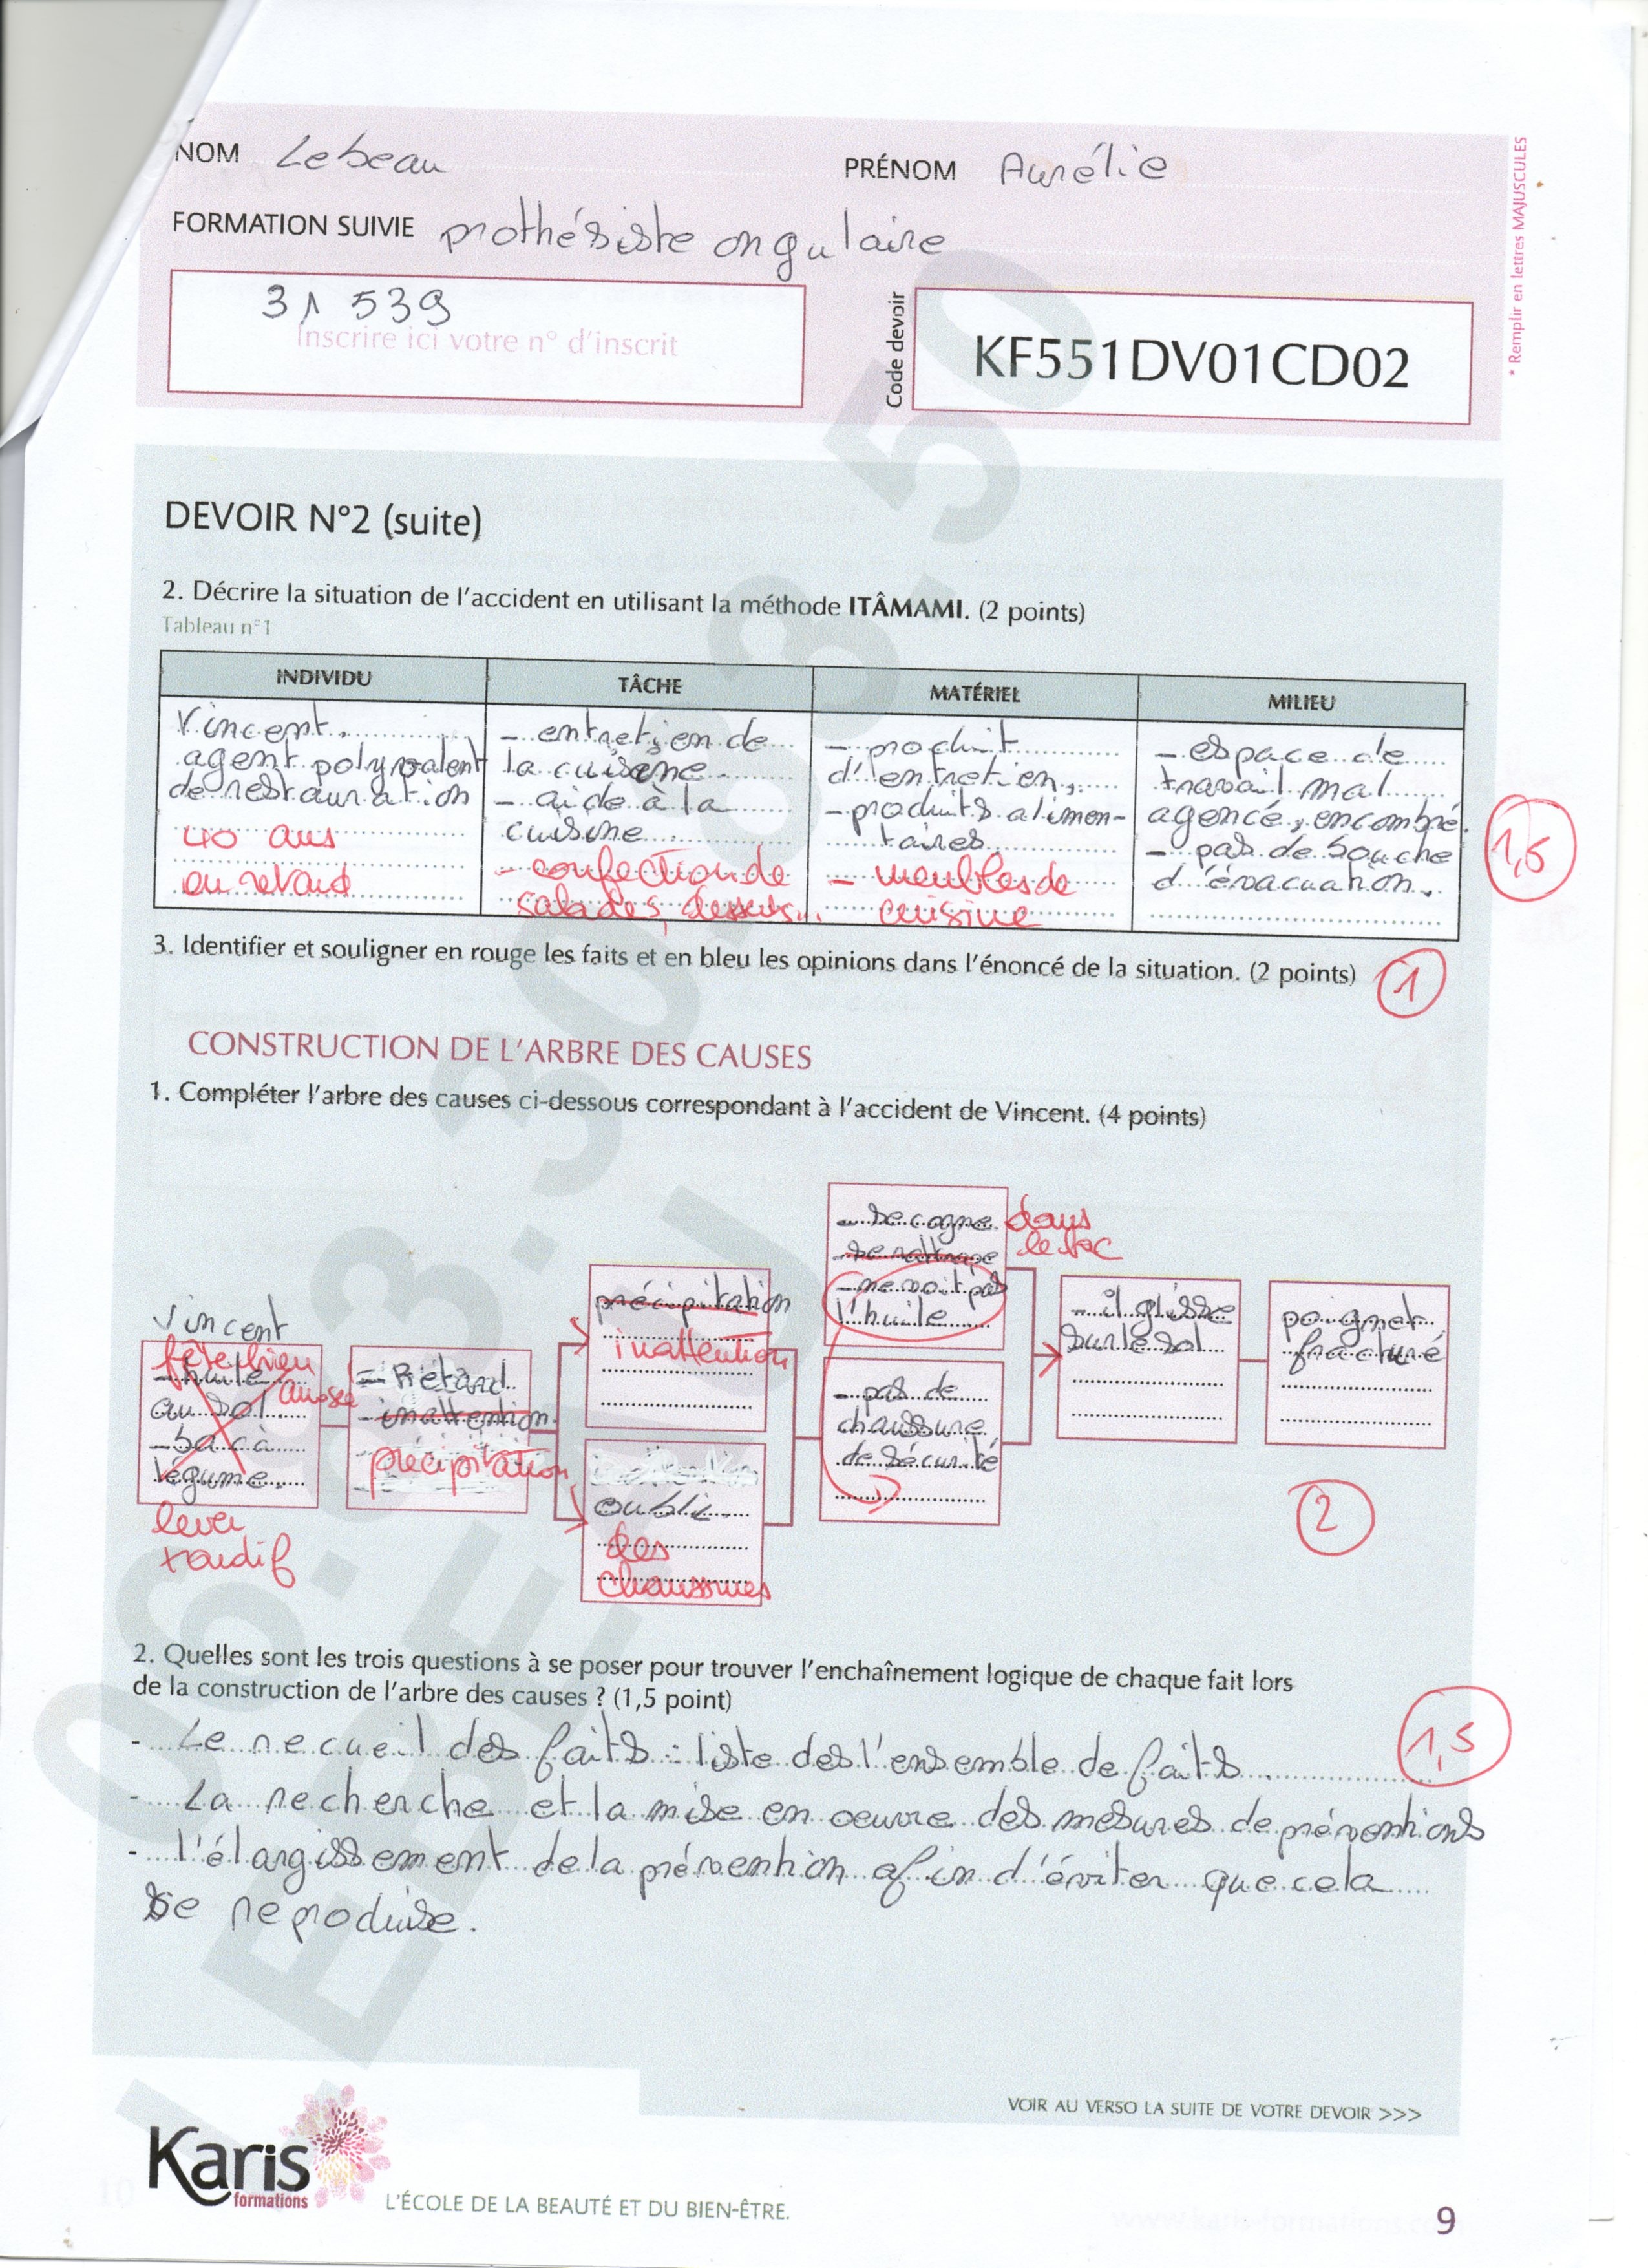 NOM Lebeau
PRÉNOM Aurélie
* Remplir en lettres MAJUSCULES
FORMATION SUIVIE prothésiste ongulaire
31 539
Inscrire ici votre n° d'inscrit
Code devoir
KF551DV01CD02
DEVOIR N°2 (suite)
2. Décrire la situation de l'accident en utilisant la méthode ITÂMAMI. (2 points)
Tableau n°1
INDIVIDU
TÂCHE
MATÉRIEL
MILIEU
Vincent.
agent polyvalent
de restauration
40 ans
en retard
- entretien de
la cuisine.
- aide à la
cuisine.
- confection de
salades, desserts...
- produit
d'entretien,
- produits alimen-
taires
- meubles de
cuisine
- espace de
travail mal
agencé, encombré.
- pas de bouche
d'évacuation.
1,5
3. Identifier et souligner en rouge les faits et en bleu les opinions dans l'énoncé de la situation. (2 points)
1
CONSTRUCTION DE L'ARBRE DES CAUSES
1. Compléter l'arbre des causes ci-dessous correspondant à l'accident de Vincent. (4 points)
Vincent
fête bien
arrosée
- huile
au sol
- bac à
légume.
lever
tardif
- Retard
- inattention
précipitation
précipitation
inattention
oubli
des
chaussures
- se cogne dans
le bac
- se rattrape
- ne voit pas
l'huile
- pas de
chaussure
de sécurité
- il glisse
sur le sol
poignet
fracturé
2
2. Quelles sont les trois questions à se poser pour trouver l'enchaînement logique de chaque fait lors
de la construction de l'arbre des causes ? (1,5 point)
1,5
- Le recueil des faits : liste des l'ensemble de faits.
- La recherche et la mise en oeuvre des mesures de préventions
- l'élargissement de la prévention afin d'éviter que cela
se reproduise.
VOIR AU VERSO LA SUITE DE VOTRE DEVOIR >>>
Karis
formations
L'ÉCOLE DE LA BEAUTÉ ET DU BIEN-ÊTRE.
9